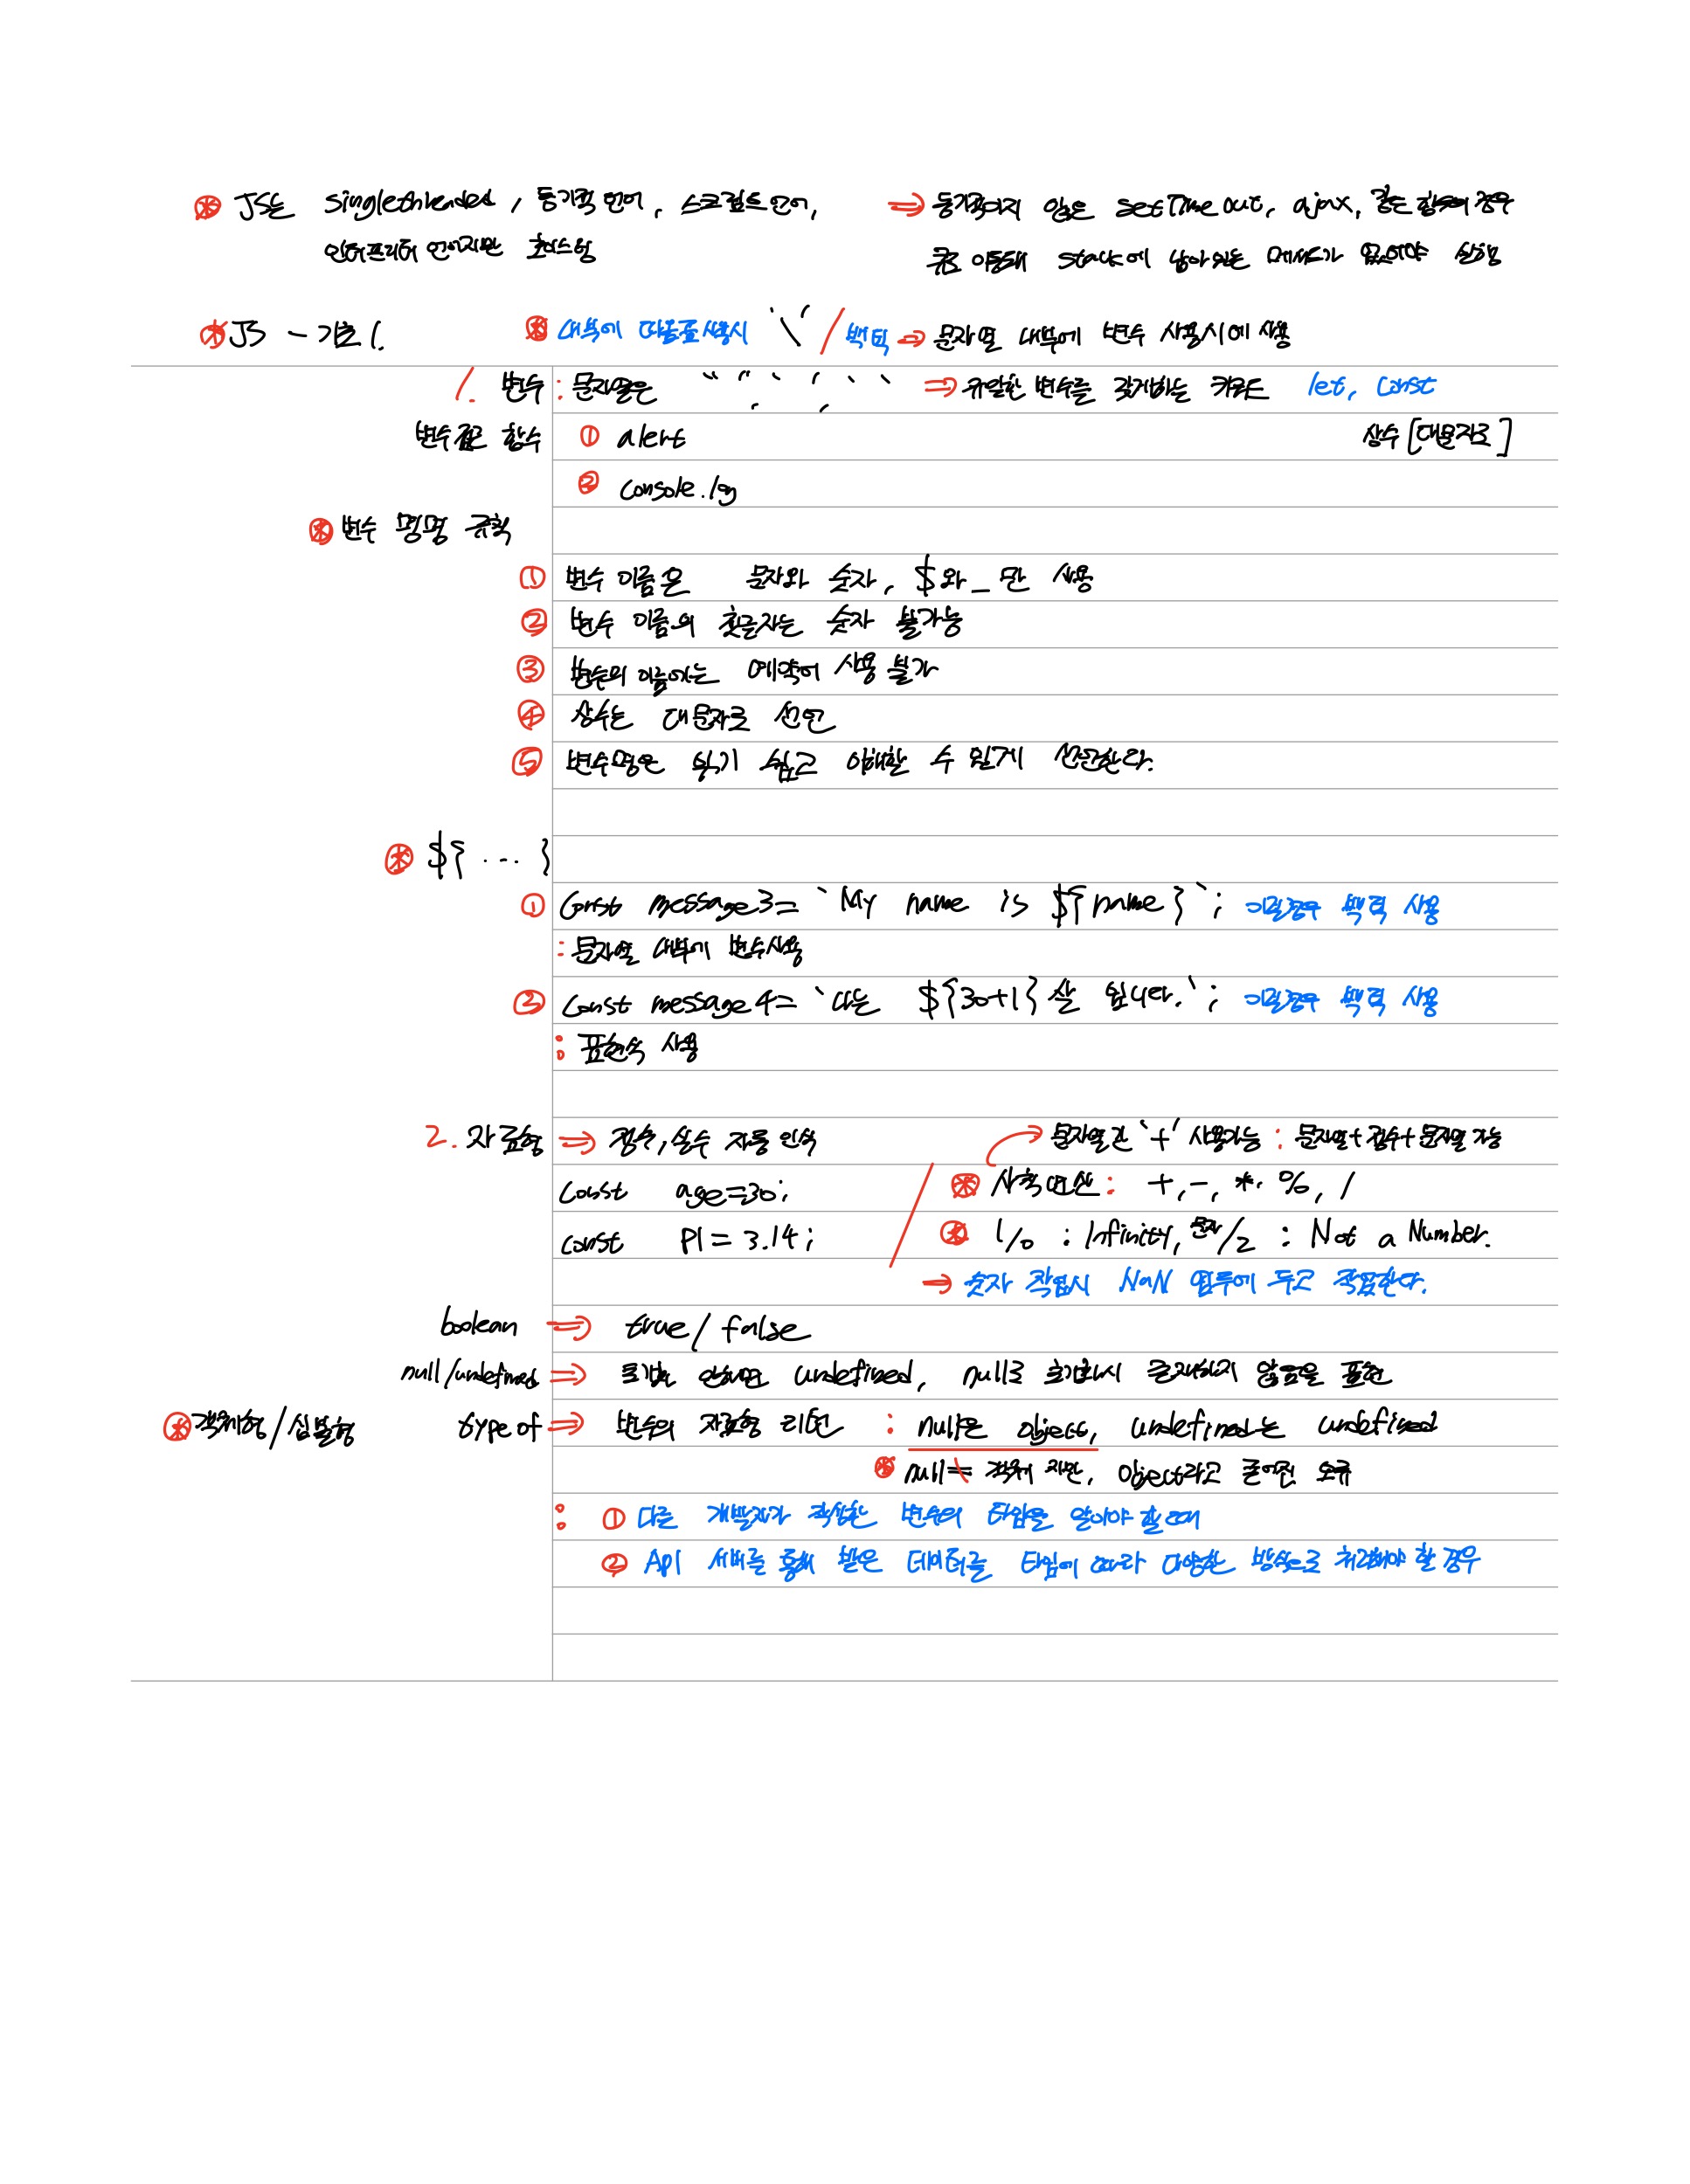 ⊛ JS는 singlethreaded, 동기적 언어, 스크립트 언어, ⇒ 동기적이지 않은 setTimeout, ajax, 같은 함수의 경우
인터프리터 언어지만 호이스팅 큐로 이동돼 stack에 남아있는 메세지가 없어야 실행
⊛ JS - 기초 1.
⊛ 내부에 따옴표 사용시 '\' / 백틱 ⇒ 문자열 내부에 변수 사용시에 사용
1. 변수 : 문자열은 “ ”, ‘ ’, ` ` ⇒ 유일한 변수를 갖게하는 키워드 let, const
변수 출력 함수 ① alert 상수 [대문자로]
② console.log
⊛ 변수 명명 규칙
① 변수 이름은 문자와 숫자, $와 _ 만 사용
② 변수 이름의 첫글자는 숫자 불가능
③ 변수의 이름에는 예약어 사용 불가
④ 상수는 대문자로 선언
⑤ 변수명은 읽기 쉽고 이해할 수 있게 선언한다.
⊛ ${ ... }
① Const message3 = `My name is ${name}`; 이럴경우 백틱 사용
: 문자열 내부에 변수사용
② Const message4 = `나는 ${30+1}살 입니다.`; 이럴경우 백틱 사용
: 표현식 사용
2. 자료형 ⇒ 정수, 실수 자동 인식 → 문자열간 '+' 사용가능 : 문자열+정수+문자열 가능
Const age=30; ⊛ 사칙연산 : +, -, *, %, /
const PI = 3.14; ⊛ 1/0 : Infinity, 문자/2 : Not a Number.
→ 숫자 작업시 NaN 염두에 두고 작업한다.
boolean ⇒ true / false
null/undefined ⇒ 초기화 안하면 undefined, null로 초기화시 존재하지 않음을 표현
⊛ 객체형/심볼형 type of ⇒ 변수의 자료형 리턴 : null은 object, undefined는 undefined
⊛ null ≠ 객체 지만, object라고 굳어진 오류
: ① 다른 개발자가 작성한 변수의 타입을 알아야 할때
② Api 서버를 통해 받은 데이터를 타입에 따라 다양한 방식으로 처리해야 할 경우